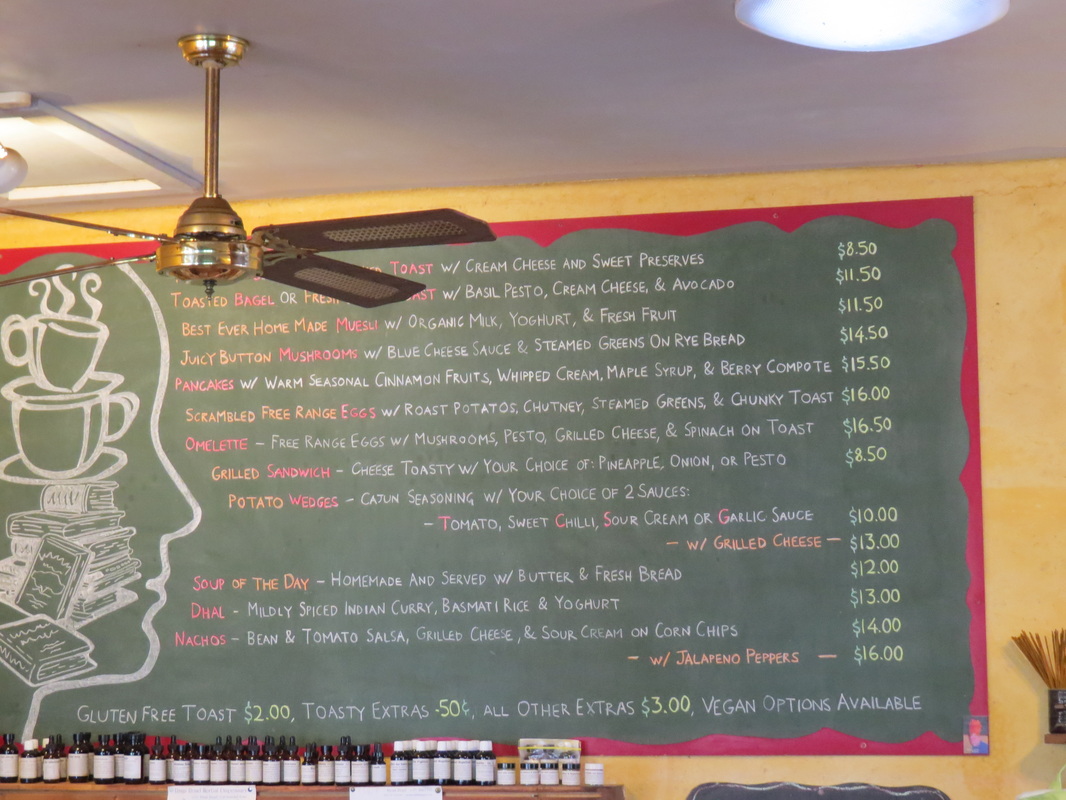 TOAST W/ CREAM CHEESE AND SWEET PRESERVES $8.50
TOASTED BAGEL OR FRESH TOAST W/ BASIL PESTO, CREAM CHEESE, & AVOCADO $11.50
BEST EVER HOME MADE MUESLI W/ ORGANIC MILK, YOGHURT, & FRESH FRUIT $11.50
JUICY BUTTON MUSHROOMS W/ BLUE CHEESE SAUCE & STEAMED GREENS ON RYE BREAD $14.50
PANCAKES W/ WARM SEASONAL CINNAMON FRUITS, WHIPPED CREAM, MAPLE SYRUP, & BERRY COMPOTE $15.50
SCRAMBLED FREE RANGE EGGS W/ ROAST POTATOS, CHUTNEY, STEAMED GREENS, & CHUNKY TOAST $16.00
OMELETTE – FREE RANGE EGGS W/ MUSHROOMS, PESTO, GRILLED CHEESE, & SPINACH ON TOAST $16.50
GRILLED SANDWICH – CHEESE TOASTY W/ YOUR CHOICE OF: PINEAPPLE, ONION, OR PESTO $8.50
POTATO WEDGES – CAJUN SEASONING W/ YOUR CHOICE OF 2 SAUCES:
– TOMATO, SWEET CHILLI, SOUR CREAM OR GARLIC SAUCE $10.00
– W/ GRILLED CHEESE – $13.00
SOUP OF THE DAY – HOMEMADE AND SERVED W/ BUTTER & FRESH BREAD $12.00
DHAL – MILDLY SPICED INDIAN CURRY, BASMATI RICE & YOGHURT $13.00
NACHOS – BEAN & TOMATO SALSA, GRILLED CHEESE, & SOUR CREAM ON CORN CHIPS $14.00
– W/ JALAPENO PEPPERS – $16.00
GLUTEN FREE TOAST $2.00, TOASTY EXTRAS .50¢, ALL OTHER EXTRAS $3.00, VEGAN OPTIONS AVAILABLE